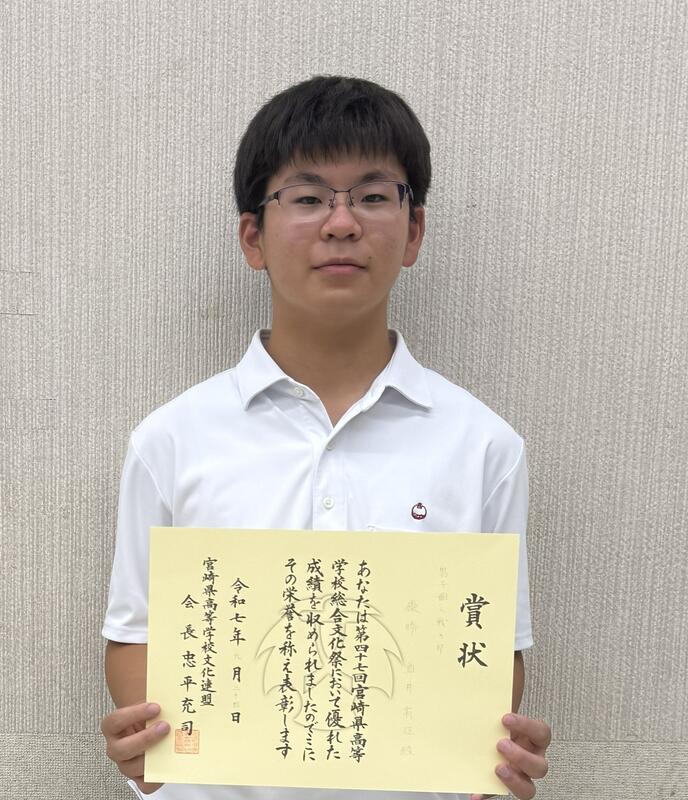 賞状
優勝
あなたは第四十七回宮崎県高等
学校総合文化祭において優れた
成績を収められましたのでここに
その栄誉を称え表彰します
令和七年 月 日
宮崎県高等学校文化連盟
会長 忠平充司